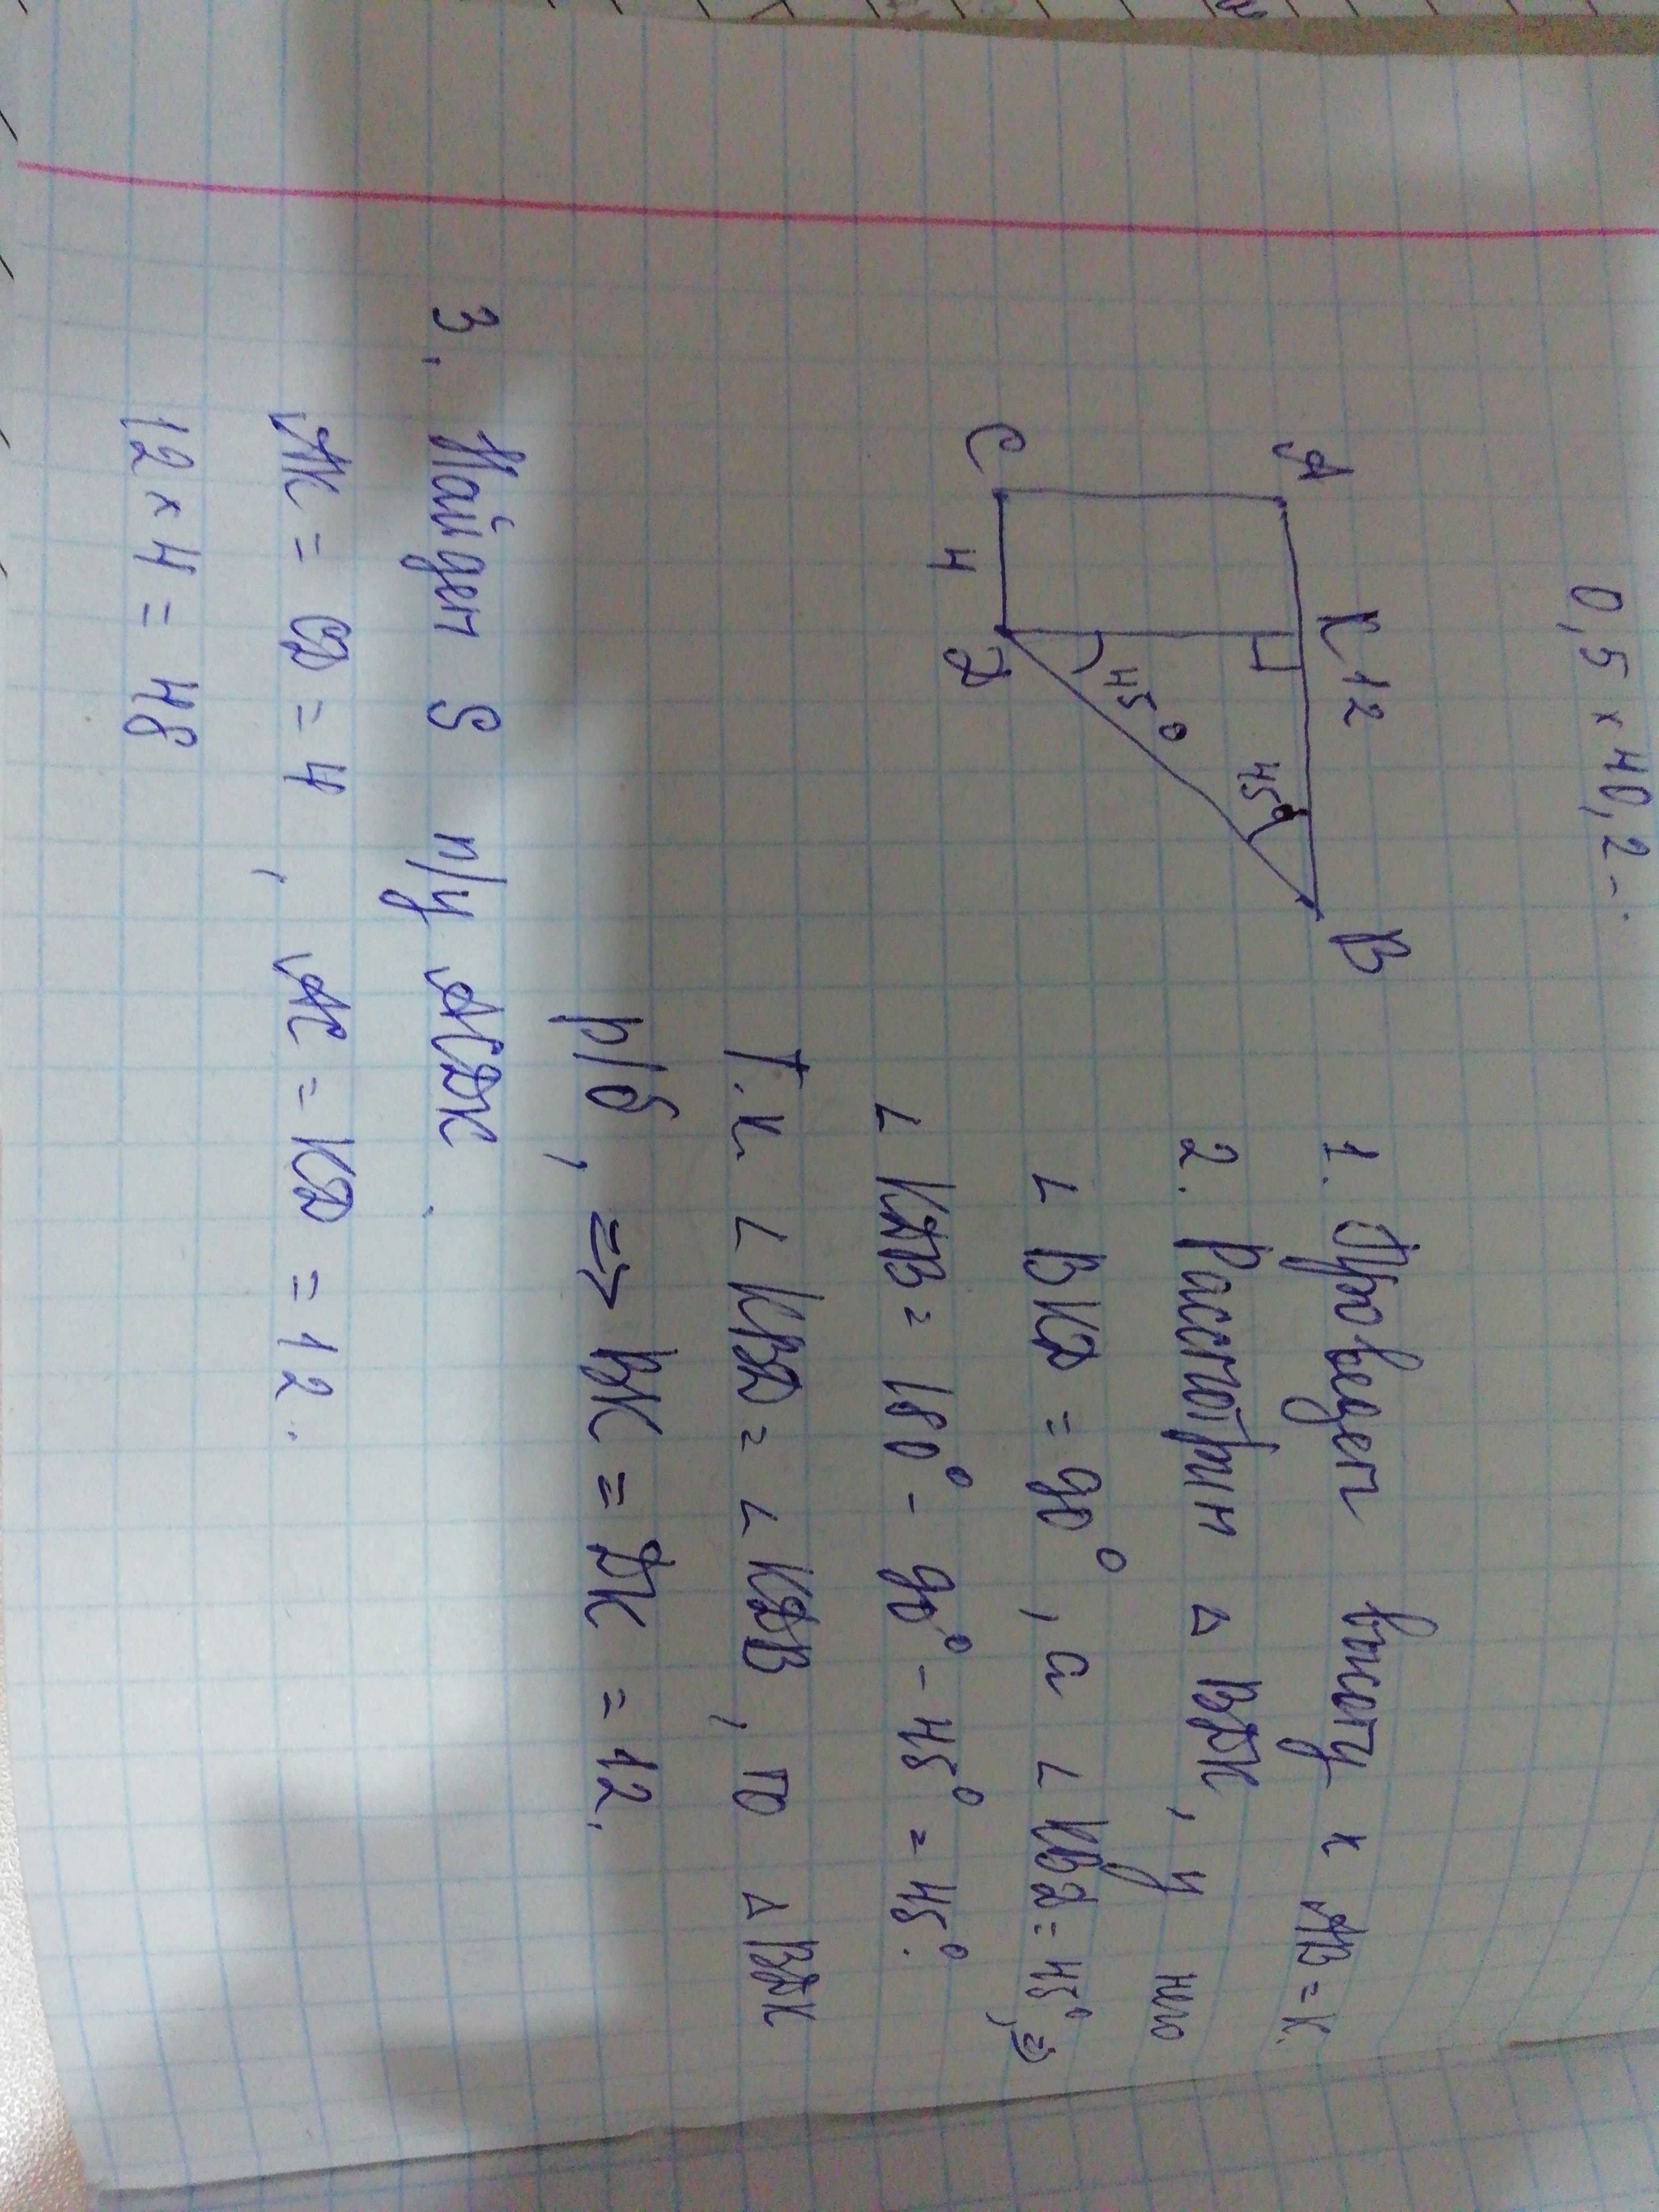 0,5 × 40,2 -
A
K 12
B
45°
45°
C
4
D
1. Проведем высоту к AB = K.
2. Рассмотрим △ BDK, у него
∠ BKD = 90°, а ∠ KBD = 45°, ⇒
∠ KDB = 180° - 90° - 45° = 45°.
Т.к. ∠ KBD = ∠ KDB, то △ BDK
р/б, ⇒ BK = DK = 12.
3. Найдем S п/у ACDK.
AK = CD = 4, AC = KD = 12.
12 × 4 = 48